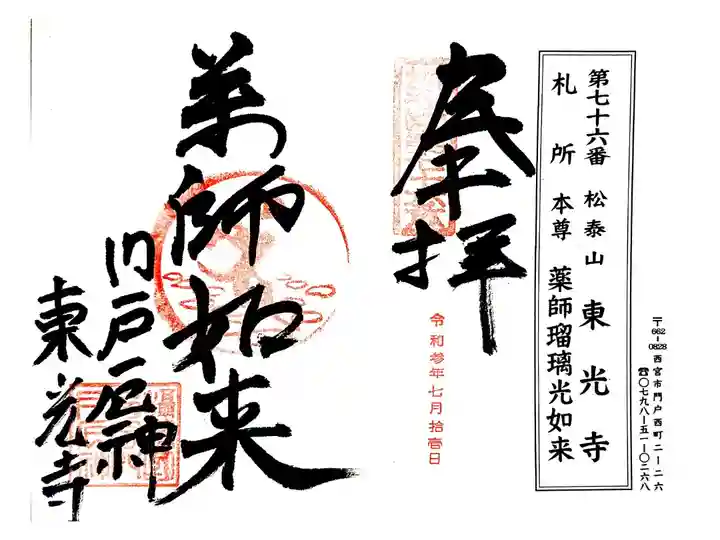 〒662-0828 西宮市門戸西町二-二六
☎〇七九八-五一-〇二六八
第七十六番 松泰山 東光寺
札所 本尊 薬師瑠璃光如来
奉拝
令和参年七月拾壱日
薬師如来
門戸厄神
東光寺